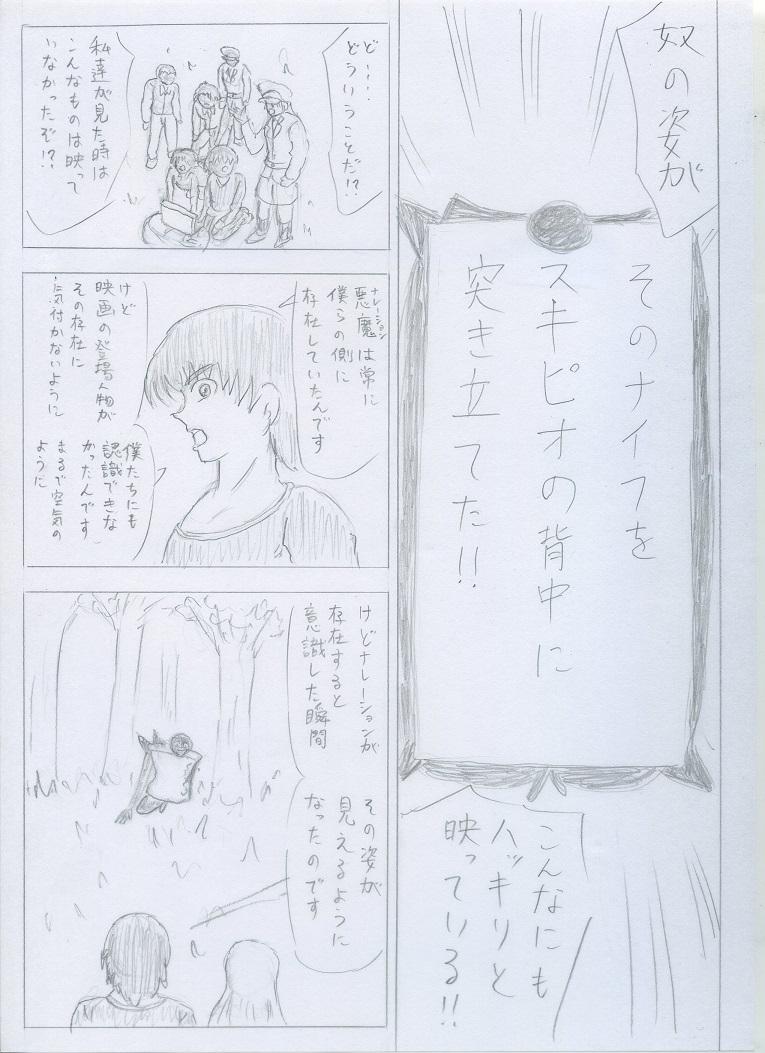 奴の姿が
そのナイフを
スキピオの背中に
突き立てた!!
こんなにも
ハッキリと
映っている!!
ど…
どういうことだ!?
私達が見た時は
こんなものは映って
いなかったぞ!?
悪魔は常に
ナレーション
僕らの側に
存在していたんです
けど
映画の登場人物が
その存在に
気付かないように
僕たちにも
認識できな
かったんです
まるで空気の
ように
けどナレーションが
存在すると
意識した瞬間
その姿が
見えるように
なったのです